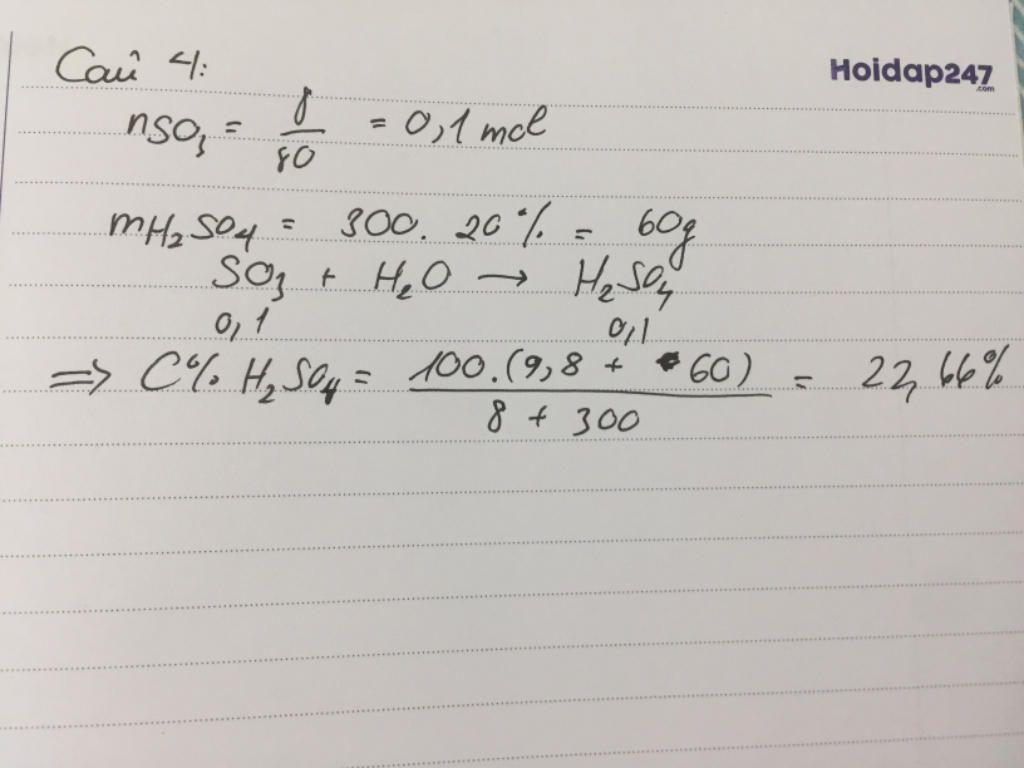 Câu 4:
Hoidap247
.com
nSO₃ = 8/80 = 0,1 mol
mH₂SO₄ = 300. 20% = 60g
SO₃ + H₂O → H₂SO₄
0,1 0,1
=> C% H₂SO₄ = 100.(9,8 + 60) / 8 + 300 = 22,66%